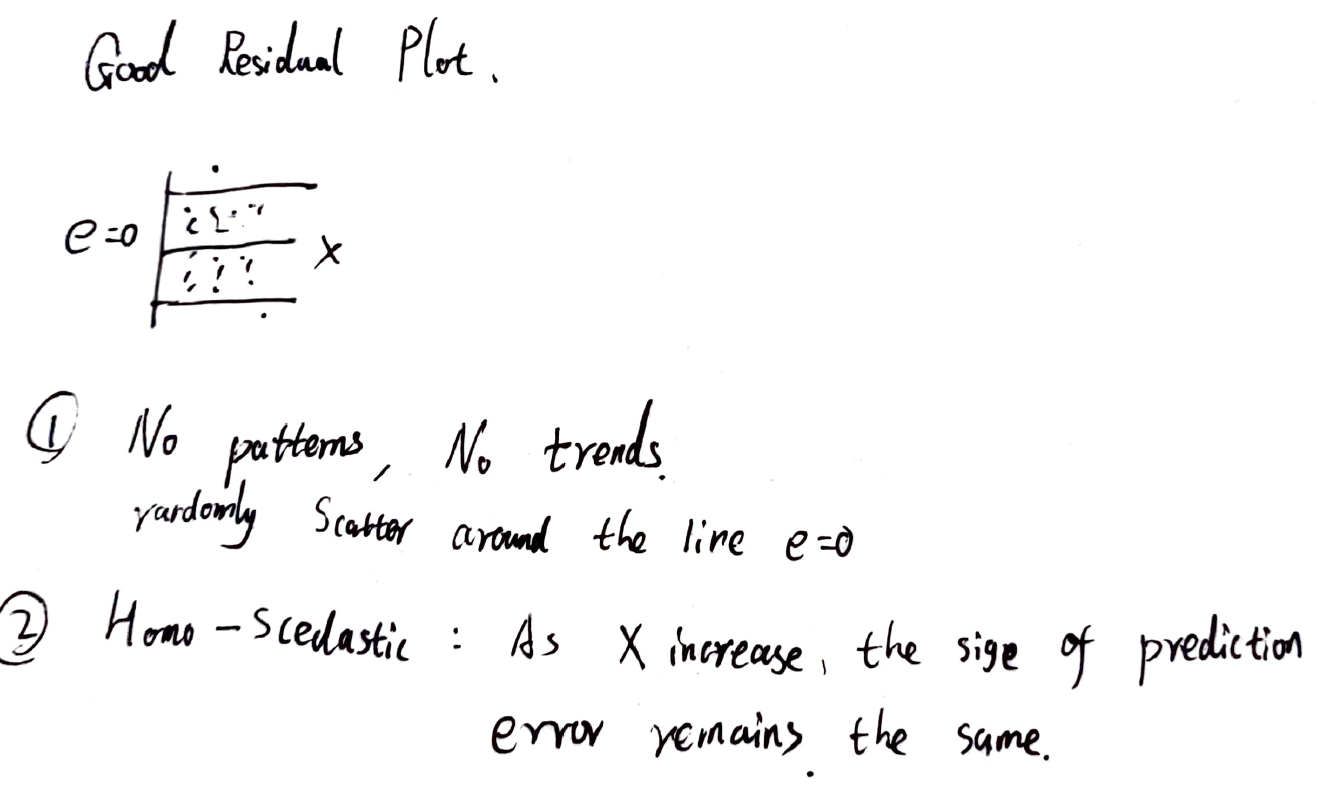 Good Residual Plot.
e=0
X
① No patterns, No trends.
randomly Scatter around the line e=0
② Homo-Scedastic : As X increase, the size of prediction
error remains the same.